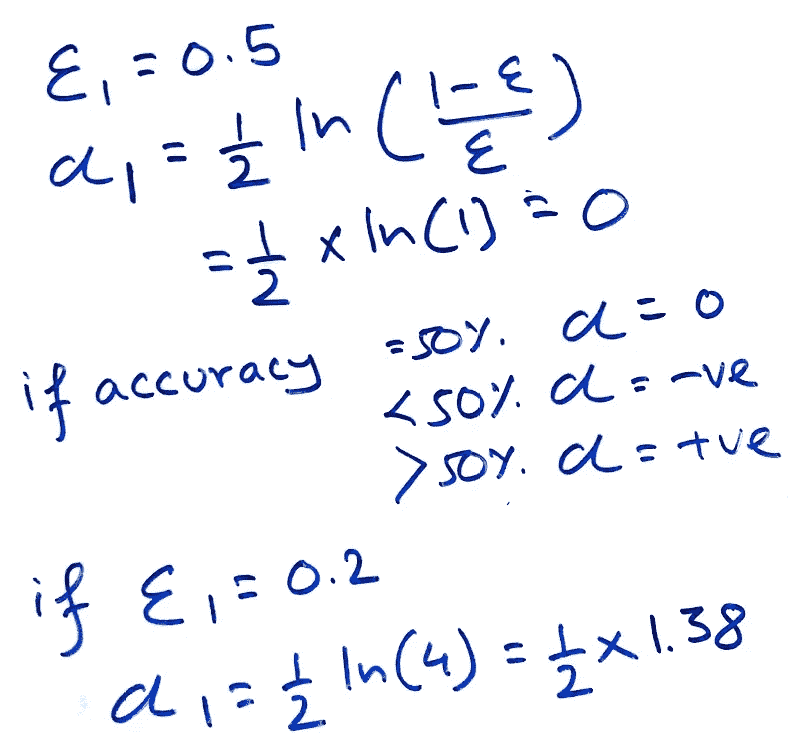 ε₁ = 0.5
α₁ = 1/2 ln ( (1-ε)/ε )
= 1/2 x ln(1) = 0
if accuracy = 50%. α = 0
< 50%. α = -ve
> 50%. α = +ve
if ε₁ = 0.2
α₁ = 1/2 ln(4) = 1/2 x 1.38